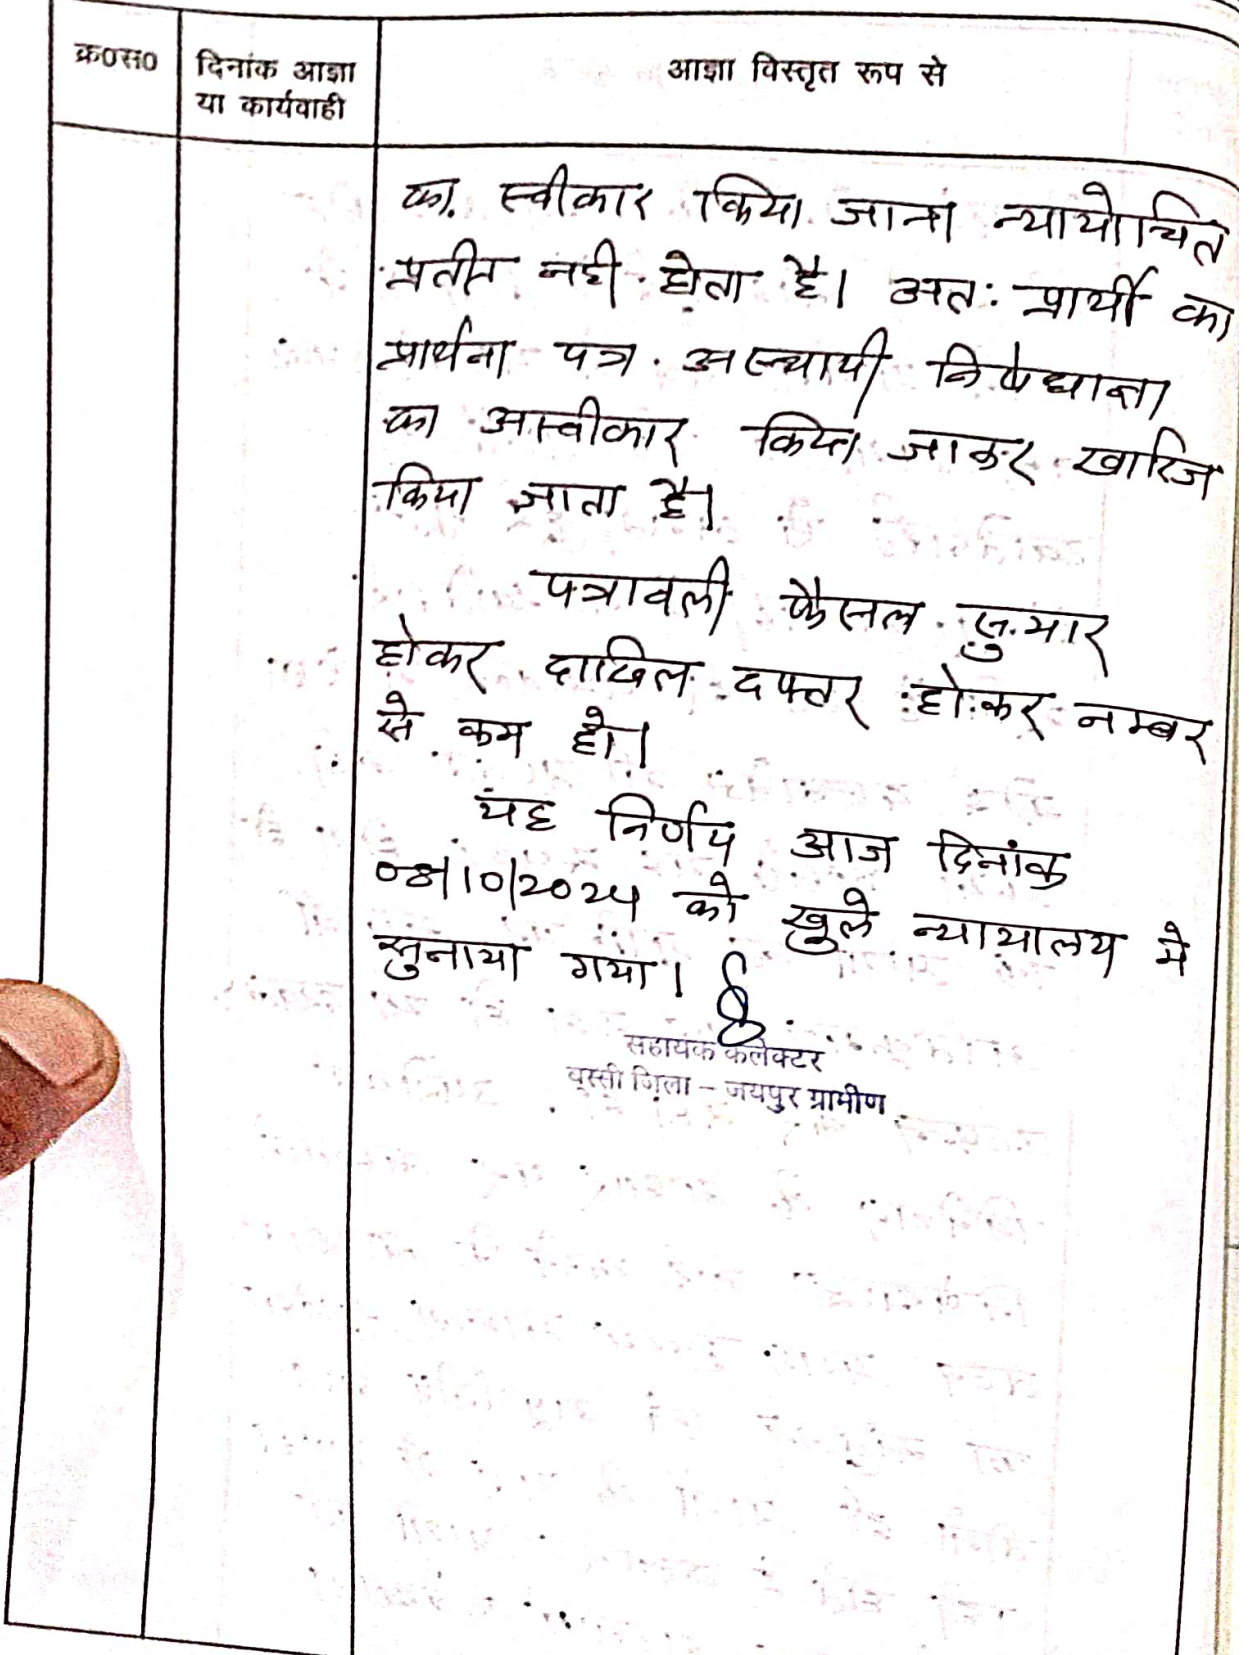 क्र०स०
दिनांक आज्ञा
या कार्यवाही
आज्ञा विस्तृत रूप से
का स्वीकार किया जाना न्यायोचित
प्रतीत नही होता है। अतः प्रार्थी का
प्रार्थना पत्र अस्थायी निषेधाज्ञा
का अस्वीकार किया जाकर खारिज
किया जाता है।
पत्रावली फैसल सुमार
होकर दाखिल दफ्तर होकर नम्बर
से कम हो।
यह निर्णय आज दिनांक
08/10/2024 को खुले न्यायालय मे
सुनाया गया।
सहायक कलेक्टर
बस्सी जिला – जयपुर ग्रामीण